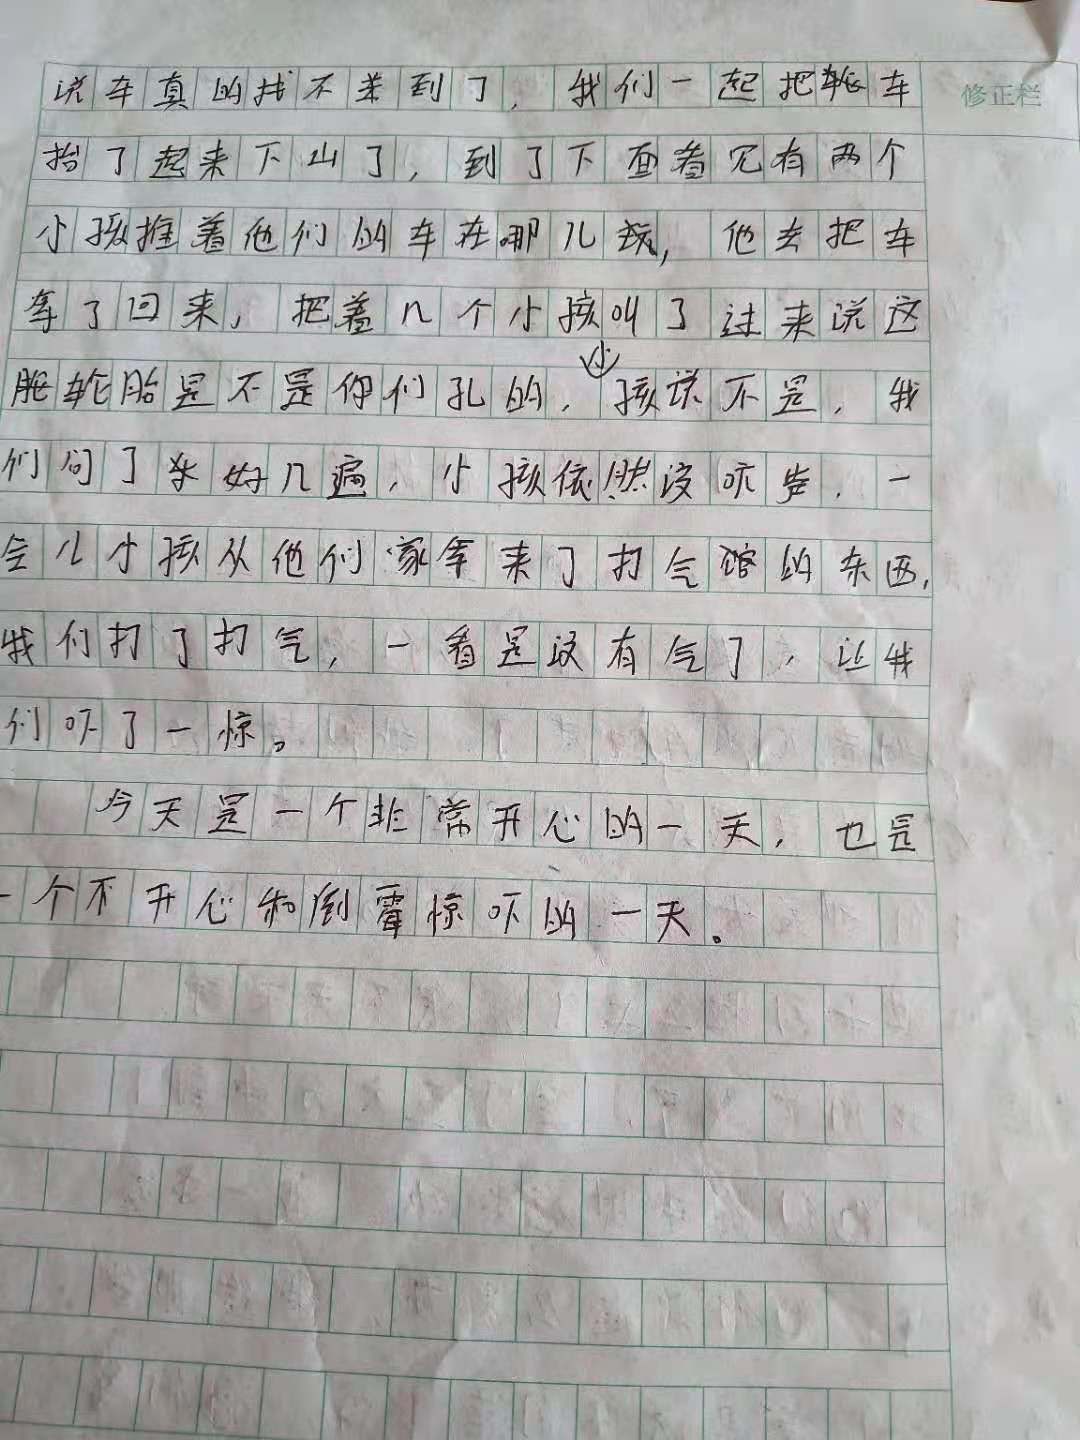 说车真的找不差到了，我们一起把车 修正栏
抬了起来下山了，到了下面看见有两个
小孩推着他们的车在哪儿玩，他去把车
拿了回来，把着几个小孩叫了过来说这
轮胎是不是你们扎的，小孩说不是，我
们问了好几遍，小孩依然没吭声，一
会儿小孩从他们家拿来了打气的东西，
我们打了打气，一看是没有气了，让我
们吓了一惊。
今天是一个非常开心的一天，也是
一个不开心和倒霉惊吓的一天。